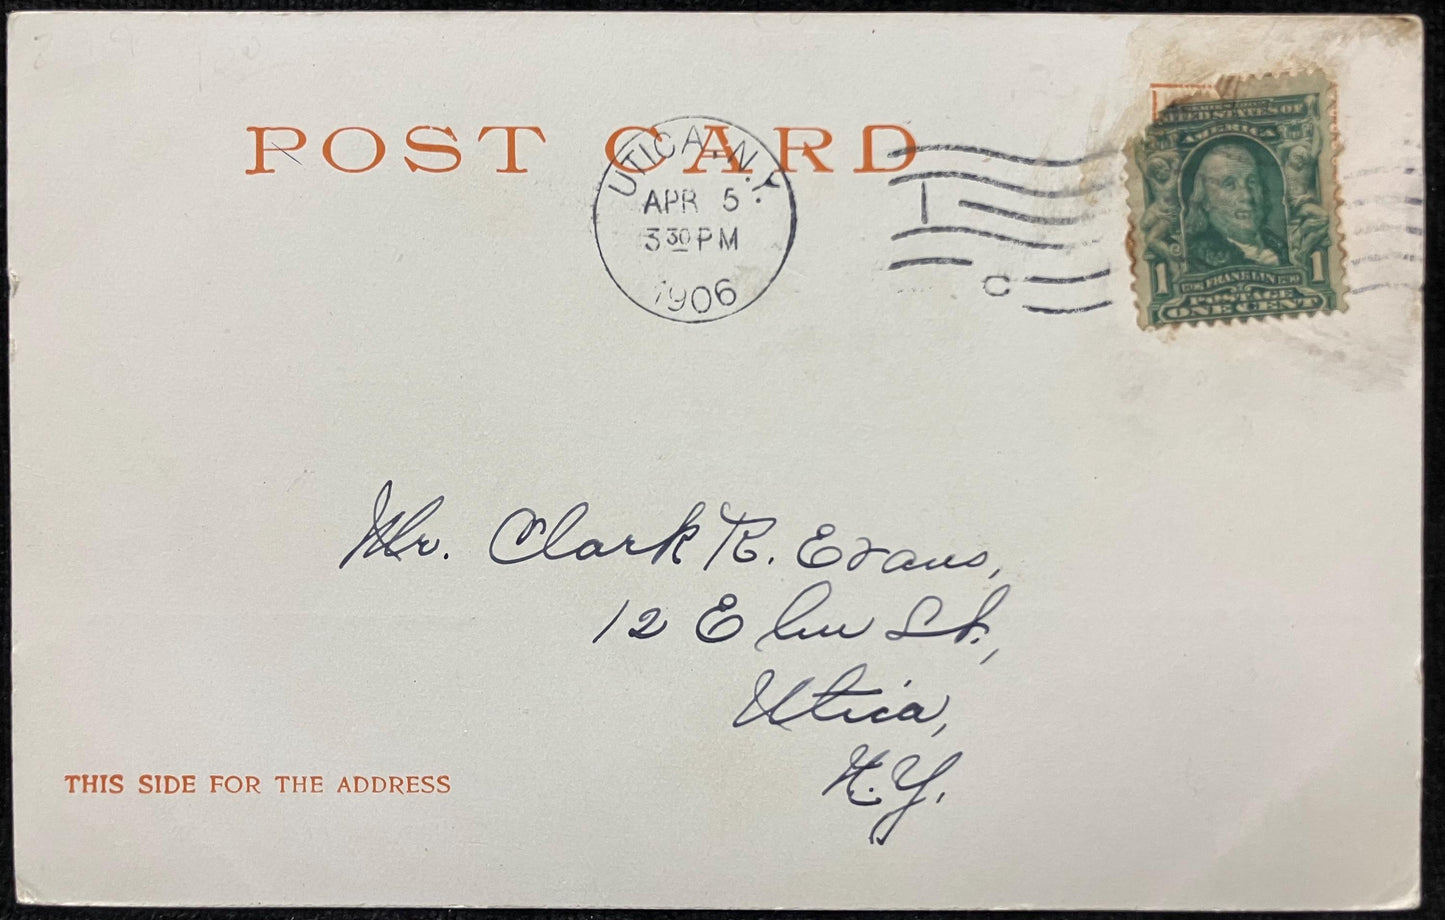 POST CARD
UTICA, N.Y.
APR 5
3 30 PM
1906
1
C
UNITED STATES OF
AMERICA
1 1
FRANKLIN
POSTAGE
ONE CENT
Mr. Clark R. Evans,
12 Elm St.,
Utica,
N.Y.
THIS SIDE FOR THE ADDRESS